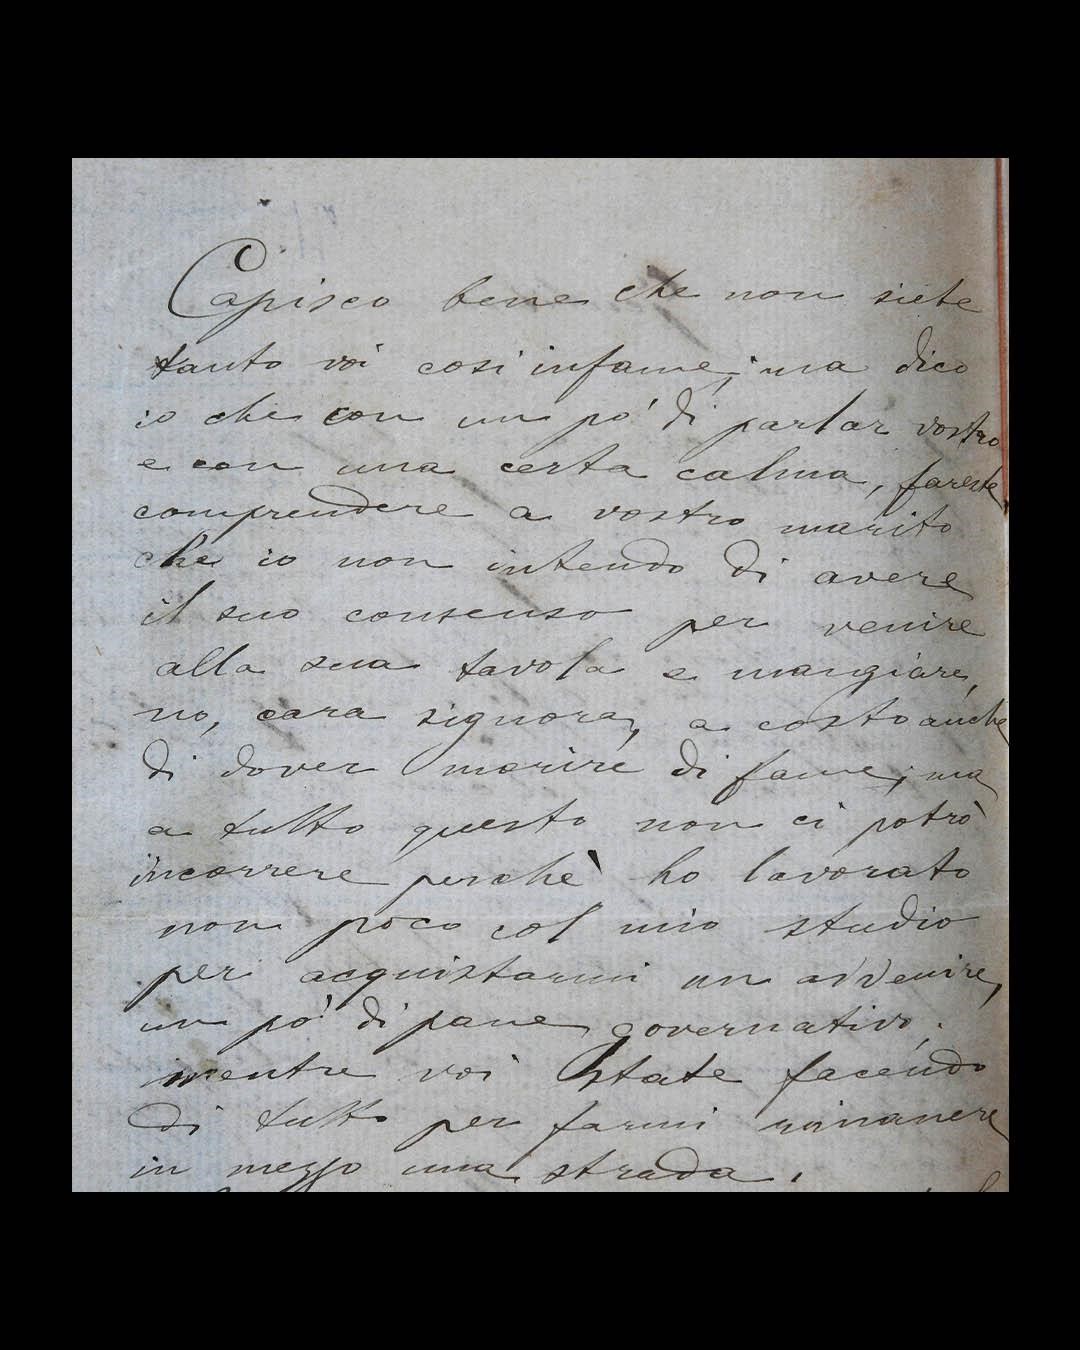 Capisco bene che non siete
tanto voi cosi infame; ma dico
io che con un po' di parlar vostro
e con una certa calma, fareste
comprendere a vostro marito
che io non intendo di avere
il suo consenso per venire
alla sua tavola e mangiare,
no, cara signora, a costo anche
di dover morire di fame; ma
a tutto questo non ci potrò
incorrere perchè ho lavorato
non poco col mio studio
per acquistarmi un avvenire,
un po' di pane governativo.
mentre voi state facendo
di tutto per farmi rimanere
in mezzo una strada.